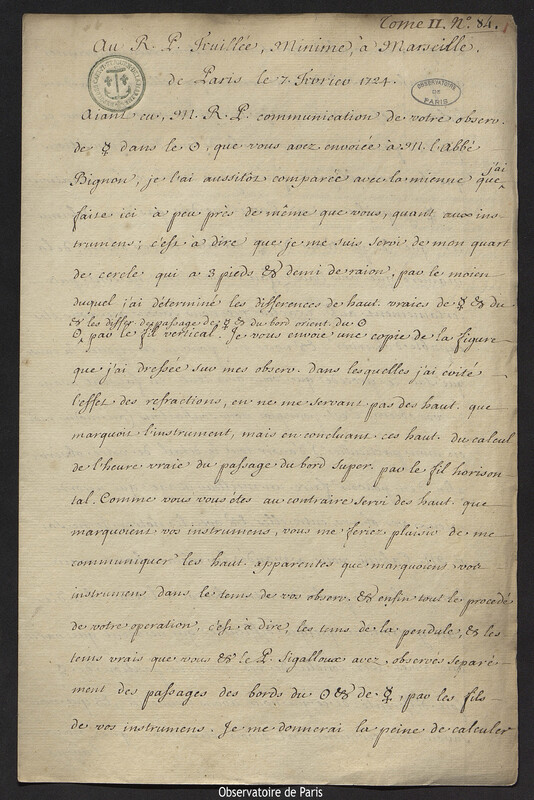 Tome II. N.º 84.
Au R. P. Feuillée, Minime, à Marseille.
de Paris le 7 Fevrier 1724.
OBSERVATOIRE
DE
PARIS
Aiant eu, M. R. P. communication de votre observ.
de ☿ dans le ☉, que vous avez envoiée à M. l'Abbé
Bignon, je l'ai aussitôt comparée avec la mienne que j'ai
faite ici à peu près de même que vous, quant aux ins-
trumens; c'est à dire que je me suis servi de mon quart
de cercle qui a 3 pieds & demi de raion, par le moien
duquel j'ai déterminé les differences de haut. vraies de ☿ & du
& les differ. de passage de ☿ & du bord orient. du ☉
☉ par le fil vertical. Je vous envoie une copie de la figure
que j'ai dressée sur mes observ. dans lesquelles j'ai évité
l'effet des refractions, en ne me servant pas des haut. que
marquoit l'instrument, mais en concluant ces haut. du calcul
de l'heure vraie du passage du bord super. par le fil horison
tal. Comme vous vous êtes au contraire servi des haut. que
marquoient vos instrumens, vous me feriez plaisir de me
communiquer les haut. apparentes que marquoient vos
instrumens dans le tems de vos observ. & enfin tout le procedé
de votre operation, c'est à dire, les tems de la pendule, & les
tems vrais que vous & le P. Sigalloux avez observés separé-
ment des passages des bords du ☉ & de ☿, par les fils
de vos instrumens. Je me donnerai la peine de calculer
Observatoire de Paris